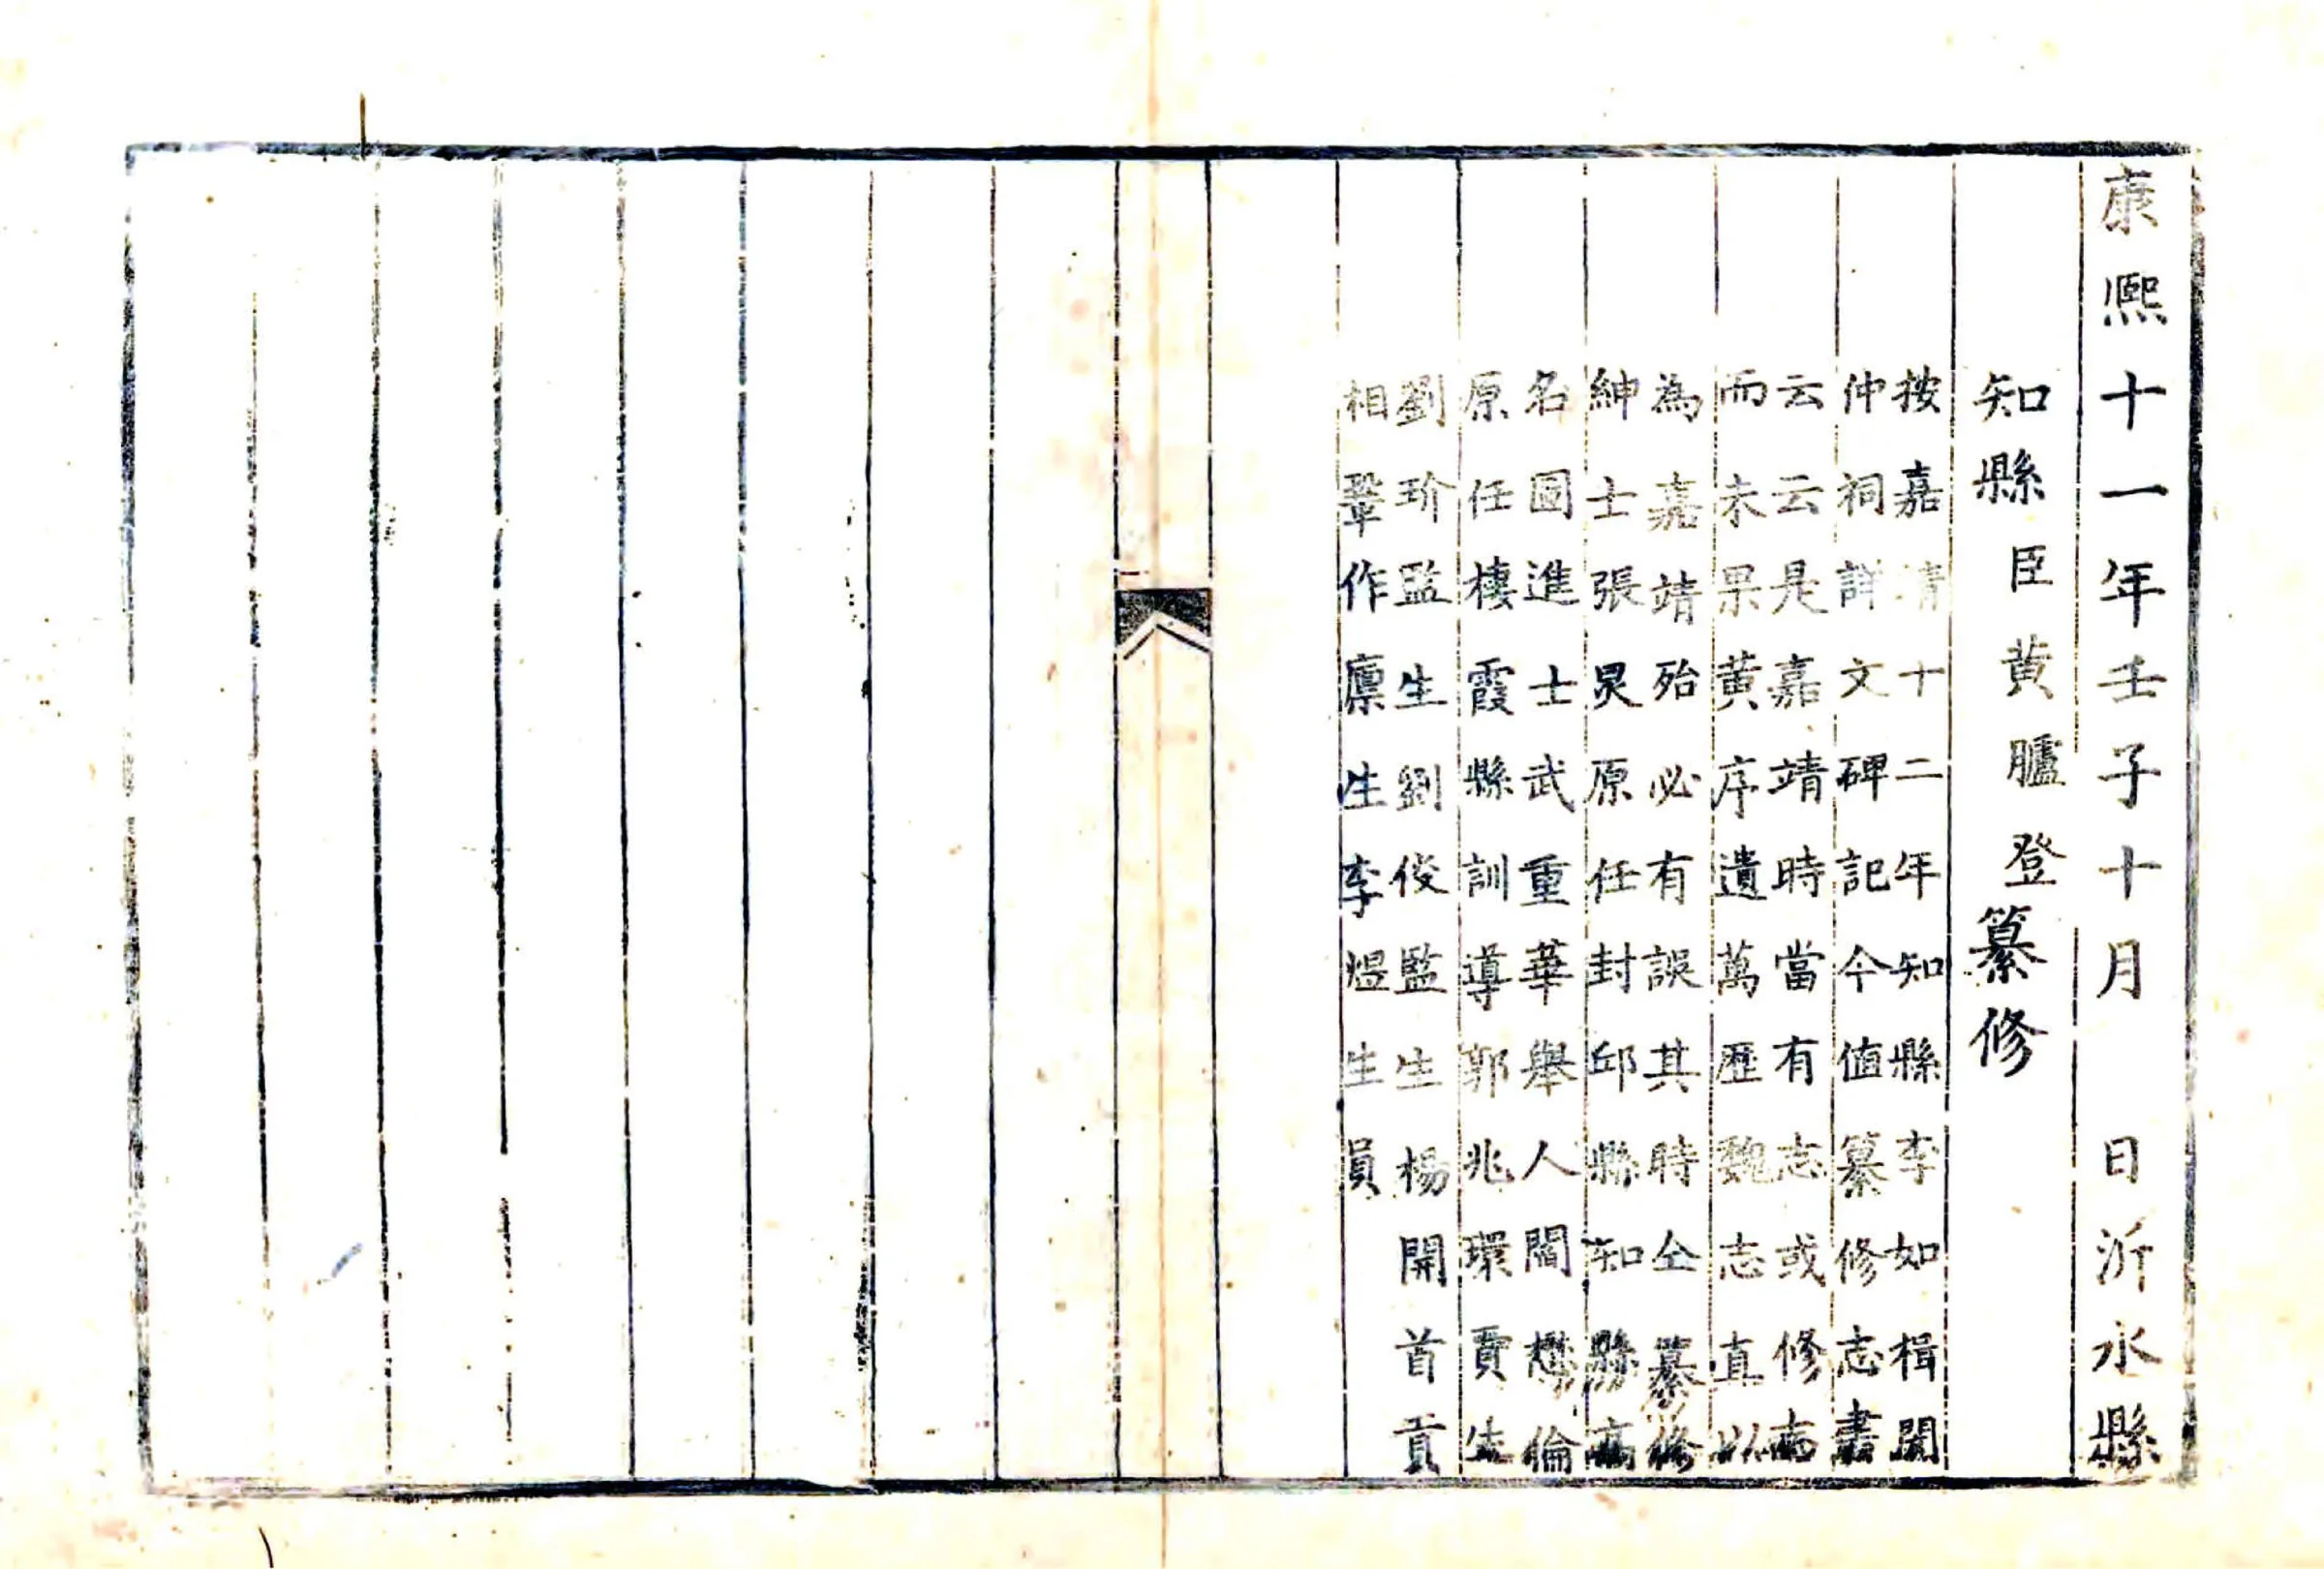 康熙十一年壬子十月　日沂水縣
知縣臣黄臚登纂修
按嘉靖十二年知縣李如楫閔
仲祠詳文碑記今值纂修志書
云云是嘉靖時當有志或修志
而未果黄序遺萬歷魏志直以
為嘉靖殆必有誤其時仝纂修
紳士張炅原任封邱縣知縣高
名圖進士武重華舉人閻懋倫
原任棲霞縣訓導郭兆環貢生
劉玠監生劉俊監生楊開首貢
相鞏作廪生李煜生員